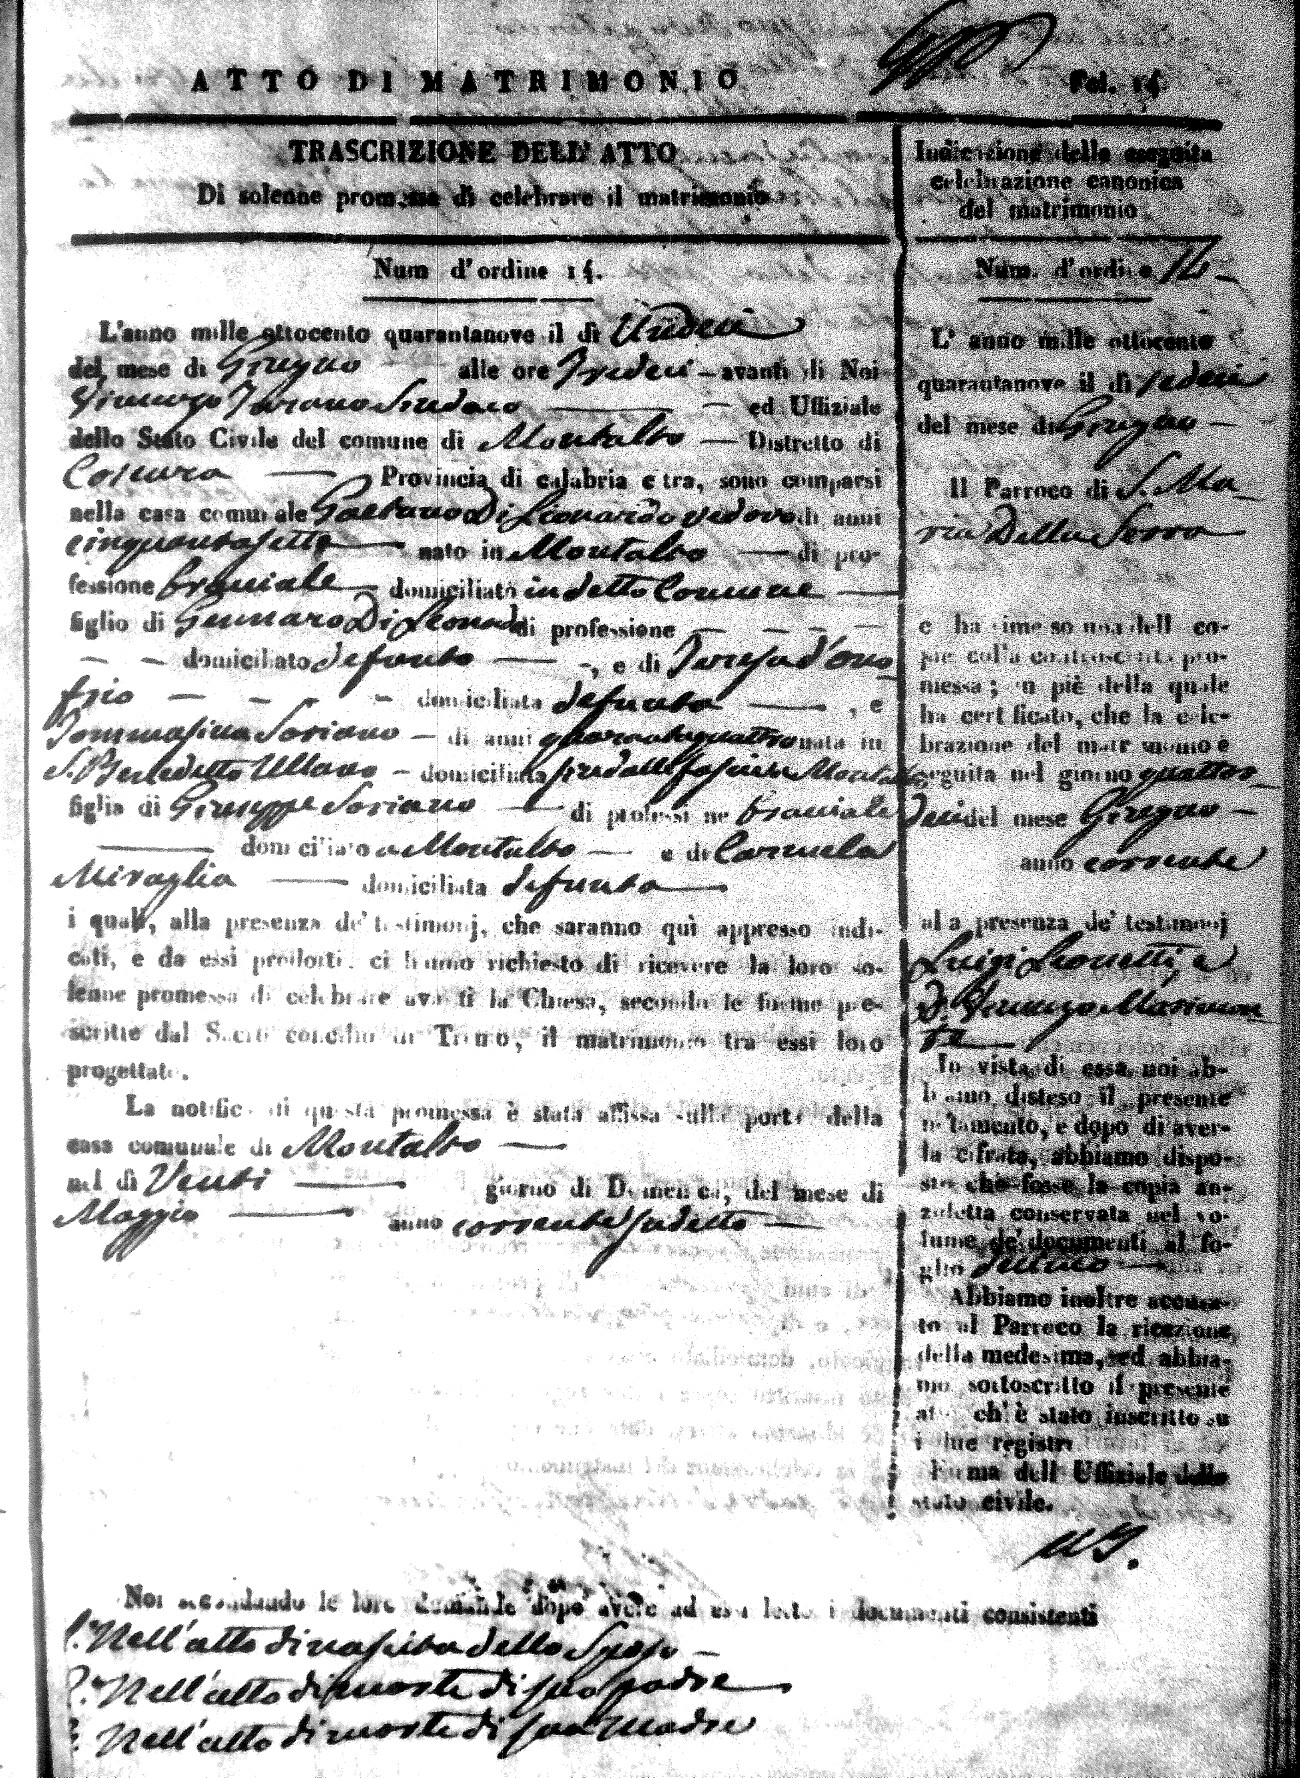 ATTO DI MATRIMONIO
Fol. 14
TRASCRIZIONE DELL' ATTO
Di solenne promessa di celebrare il matrimonio
Num d'ordine 14.
L'anno mille ottocento quarantanove il dì Undeci
del mese di Giugno alle ore Tredeci - avanti di Noi
Vincenzo Sindaco — ed Uffiziale
dello Stato Civile del comune di Montalto — Distretto di
Cosenza — Provincia di calabria citra, sono comparsi
nella casa comunale Gaetano Di Leonardo vedovo di anni
cinquantasette — nato in Montalto — di pro-
fessione braciale — domiciliato in detto Comune —
figlio di Gennaro Di Leonardo di professione — — —
— — domiciliato defunto — -, e di Teresa d'Ono
frio — — — — domiciliata defunta — , e
Tommasina Soriano — di anni quarantaquattro nata in
S. Benedetto Ullano — domiciliata Montalto
figlia di Giuseppe Soriano — di professione braciale
— domiciliato a Montalto — e di Carmela
Miraglia — domiciliata defunta —
i quali, alla presenza de' testimonj, che saranno quì appresso indi-
cati, e da essi prodotti, ci hanno richiesto di ricevere la loro so-
lenne promessa di celebrare avanti la Chiesa, secondo le forme pre-
scritte dal Sacro concilio di Trento, il matrimonio tra essi loro
progettato.
La notifica di questa promessa è stata affissa sulla porta della
casa comunale di Montalto —
nel dì Venti — giorno di Domenica, del mese di
Maggio — anno corrente sudetto —
Indicazione della eseguita
celebrazione canonica
del matrimonio
Num. d'ordine 14 -
L' anno mille ottocento
quarantanove il dì sedeci
del mese di Giugno —
Il Parroco di S. Ma-
ria Della Serra
e ha rimesso una dell co-
pie colla controscritta pro-
messa; in piè della quale
ha certificato, che la cele-
brazione del matrimonio è
seguita nel giorno quattor-
deci del mese Giugno —
anno corrente
alla presenza de' testimonj
Luigi Leonetti, e
D. Vincenzo
In vista di essa, noi ab-
biamo disteso il presente
notamento, e dopo di aver-
la cifrata, abbiamo dispo-
sto che fosse la copia an-
zidetta conservata nel vo-
lume de' documenti al fo-
glio
Abbiamo inoltre accusa-
to al Parroco la ricezione
della medesima, ed abbia-
mo sottoscritto il presente
atto ch' è stato inscritto su
i due registri
Firma dell' Uffiziale dello
stato civile.
Noi secondando le loro domande dopo avere ad essi letto i documenti consistenti
1.° Nell'atto di nascita dello Sposo —
2.° Nell'atto di morte di suo padre —
3. Nell'atto di morte di sua Madre